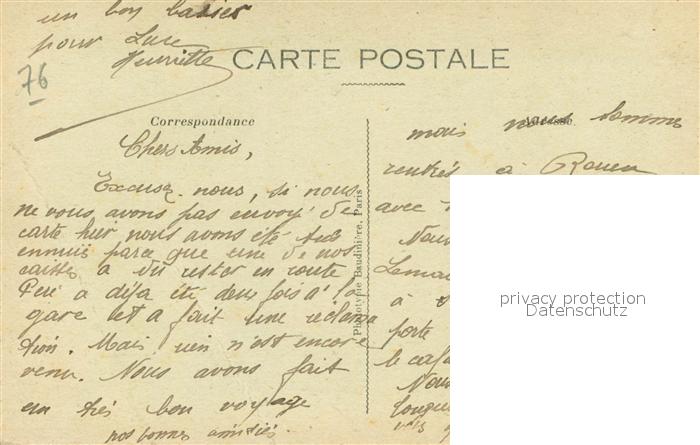 un bon baiser
pour Luce
Henriette
76
CARTE POSTALE
Correspondance
Adresse
Chers Amis,
Excusez-nous, si nous
ne vous avons pas envoyé de
carte hier nous avons été
ennuis parce que une de nos
caisses a dû rester en route
Père a déjà été deux fois à la
gare et a fait une réclama
tion. Mais rien n'est encore
venu. Nous avons fait
un très bon voyage
nos bonnes amitiés.
Phototypie Baudinière, Paris
mais nous sommes
rentrés à Rouen
avec
Nous
à
porte
le
Nous
privacy protection
Datenschutz